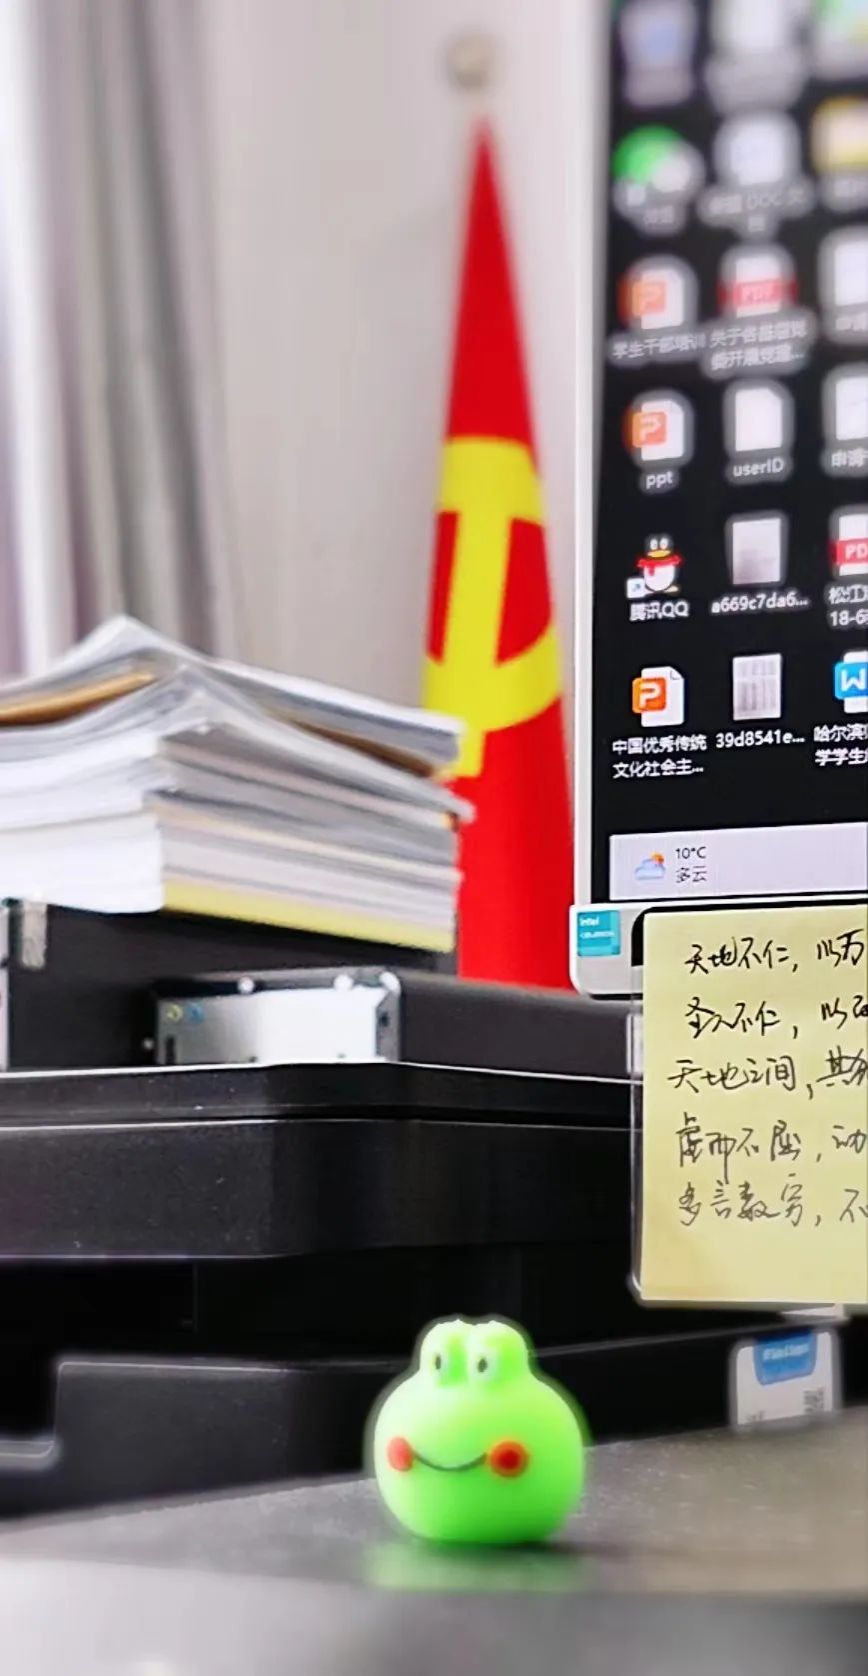 学生干部培训
关于各基层党
委开展党建...
ppt
userID
申请
腾讯QQ
a669c7da6...
松江
18-6
中国优秀传统
文化社会主...
39d8541e...
哈尔滨
学学生
10°C
多云
intel
天地不仁，以万
圣人不仁，以百
天地之间，其犹
虚而不屈，动
多言数穷，不